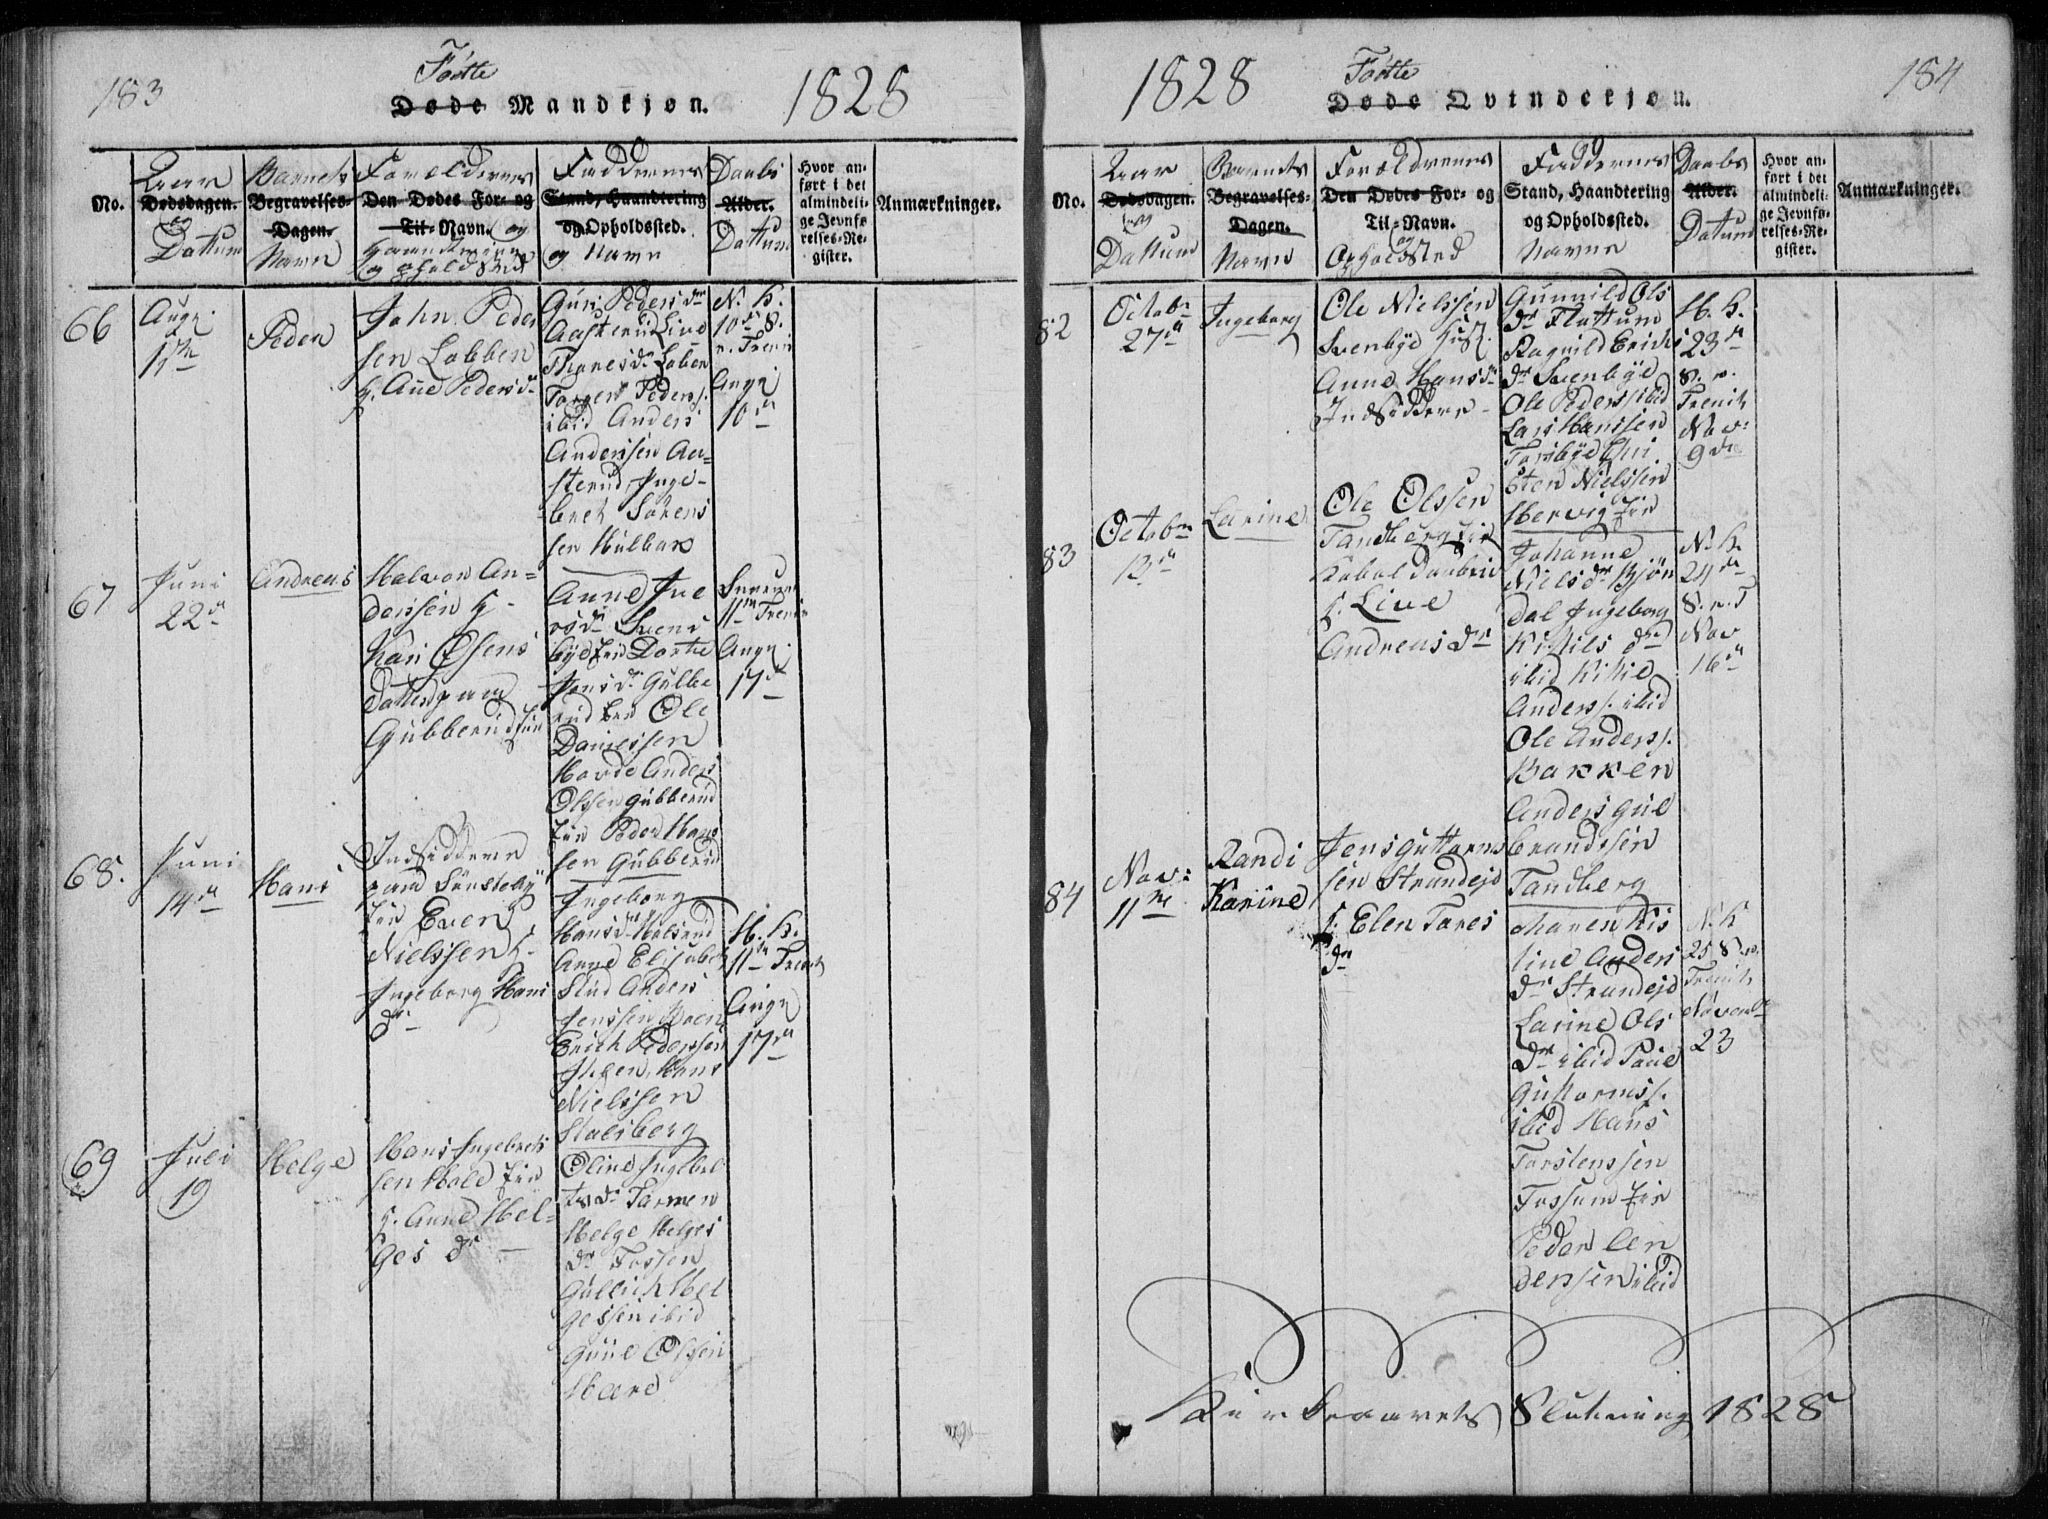 183
Födte
Døde Mandkjøn.
1828
No.
Aar
Dødsdagen.
og
Dattum
Barnets
Begravelses-
Dagen.
Navn
Forældrenes
Den Dødes For- og
Til-Navn. og
og Opholdsted
Faddernes
Stand, Haandtering
og Opholdssted.
og Navne
Daabs
Alder.
Dattum
Hvor an-
ført i det
almindeli-
ge Jevnfø-
relses-Re-
gister.
Anmærkninger.
66
Aug.
Peder
John Peder
sen Lobben
h. Ane Pedersdr
Guri Pedersdr
Aasterud Live
Thoresdr Loben
Torger Peders.
ibid Anders
Anderssen Aa=
sterud, Inge=
bret Sørens
sen Hulbak
N. K.
10de S.
e. Trenit
Augn
10de
67
Juni
22de
Andreas
Halvor An=
derssen h.
Kari Olsens
Datter paa
Gubberud Eier
Anne Ive
rsdr Svens
bye Eier Dorthe
Jensdr Gulbe
rud Eier Ole
Danielssen
Hovde Anders
Olssen Gubberud
Eier Peder Hans
sen Gubberud
11te Trenit
Augn.
17de
68.
Juni
14de
Hans
Indsiddere
paa Sønsteby
Eier Even
Nielssen h.
Ingeborg Hans
dr
Ingeborg
Hansdr Holsrud
Anne Elisabet
Stud Anders
Jenssen Moen
Erich Pederssen
Hans
Nielssen
Stalsberg
H. K.
11te Trenit
Augn
17de
69
Juli
19
Helge
Hans Ingebrets
sen Hold Eier
h. Anne Hel=
ges dr
Oline Ingebret
tsdr Tormen
Helge Helges
dr Fossen
Gullich Hel
gessen ibid
Olssen
Hære
1828
Födte
Døde Qvindekjøn.
184
No.
Aar
Dødsdagen.
og
Dattum
Barnets
Begravelses-
Dagen.
Navn
Forældrenes
Den Dødes For- og
Til-Navn.
og
Opholdsted
Faddernes
Stand, Haandtering
og Opholdssted.
Navne
Daabs
Alder.
Datum
Hvor an-
ført i det
almindeli-
ge Jevnfø-
relses-Re-
gister.
Anmærkninger.
82
Octobr
27de
Ingeborg
Ole Nielssen
Svenbye Husm.
Anne Hansdr
Indsiddere
Gunnild Ols
dr Flattum
Ragnild Erichs
dr Svenbye
Ole Pederss ibid
Lars Hanssen
Torsbye Chri
sten Nielssen
Hervig Eier
H. K.
23de
S. e.
Trenit
Nov:
9de
83
Octobr
13de
Larine
Ole Olssen
Tandberg Eier
h. Live
Andreas dr
Johanne
Nielsdr Bjön
dal Ingeborg
Kittils dr
ibid Kittil
Anderss. ibid
Ole Anderss.
Bakken
Anders Gul
brandssen
Tandberg
N. K.
24de
S. e. T
Nov
16de
84
Nov:
11te
Randi
Karine
Jens Guttorms
sen Strandejd
h. Elen Tores
dr
Maren Kis
tine Anders
dr Strandejd
Larine Ols
dr ibid Paul
Guttormss.
ibid Hans
Torstenssen
Fossum Eier
Peder
derssen ibid
N. K
25 S. e.
Trenit
Novemb
23
Kirkeaarets Slutning 1828